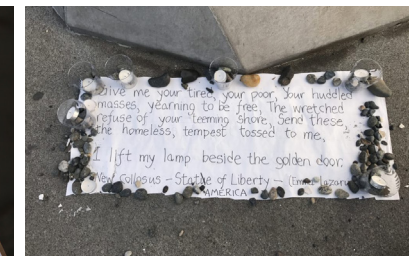 Give me your tired, your poor, your huddled
masses, yearning to be free, The wretched
refuse of your teeming shore, Send these,
the homeless, tempest tossed to me,
I lift my lamp beside the golden door.
New Collosus – Statue of Liberty – (Emma Lazarus
AMERICA